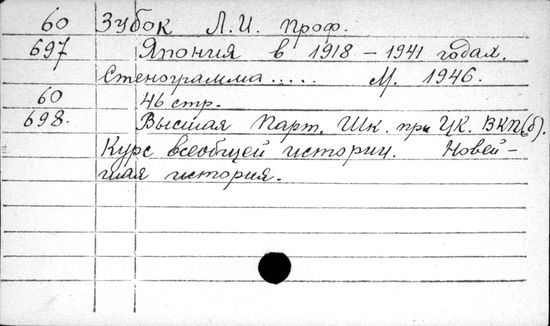 60 Зубок Л.И. проф.
697 Япония в 1918 – 1941 годах.
Стенограмма..... М. 1946.
60 46 стр.
698. Высшая Парт. Шк. при ЦК. ВКП(б).
Курс всеобщей истории. Новей-
шая история.